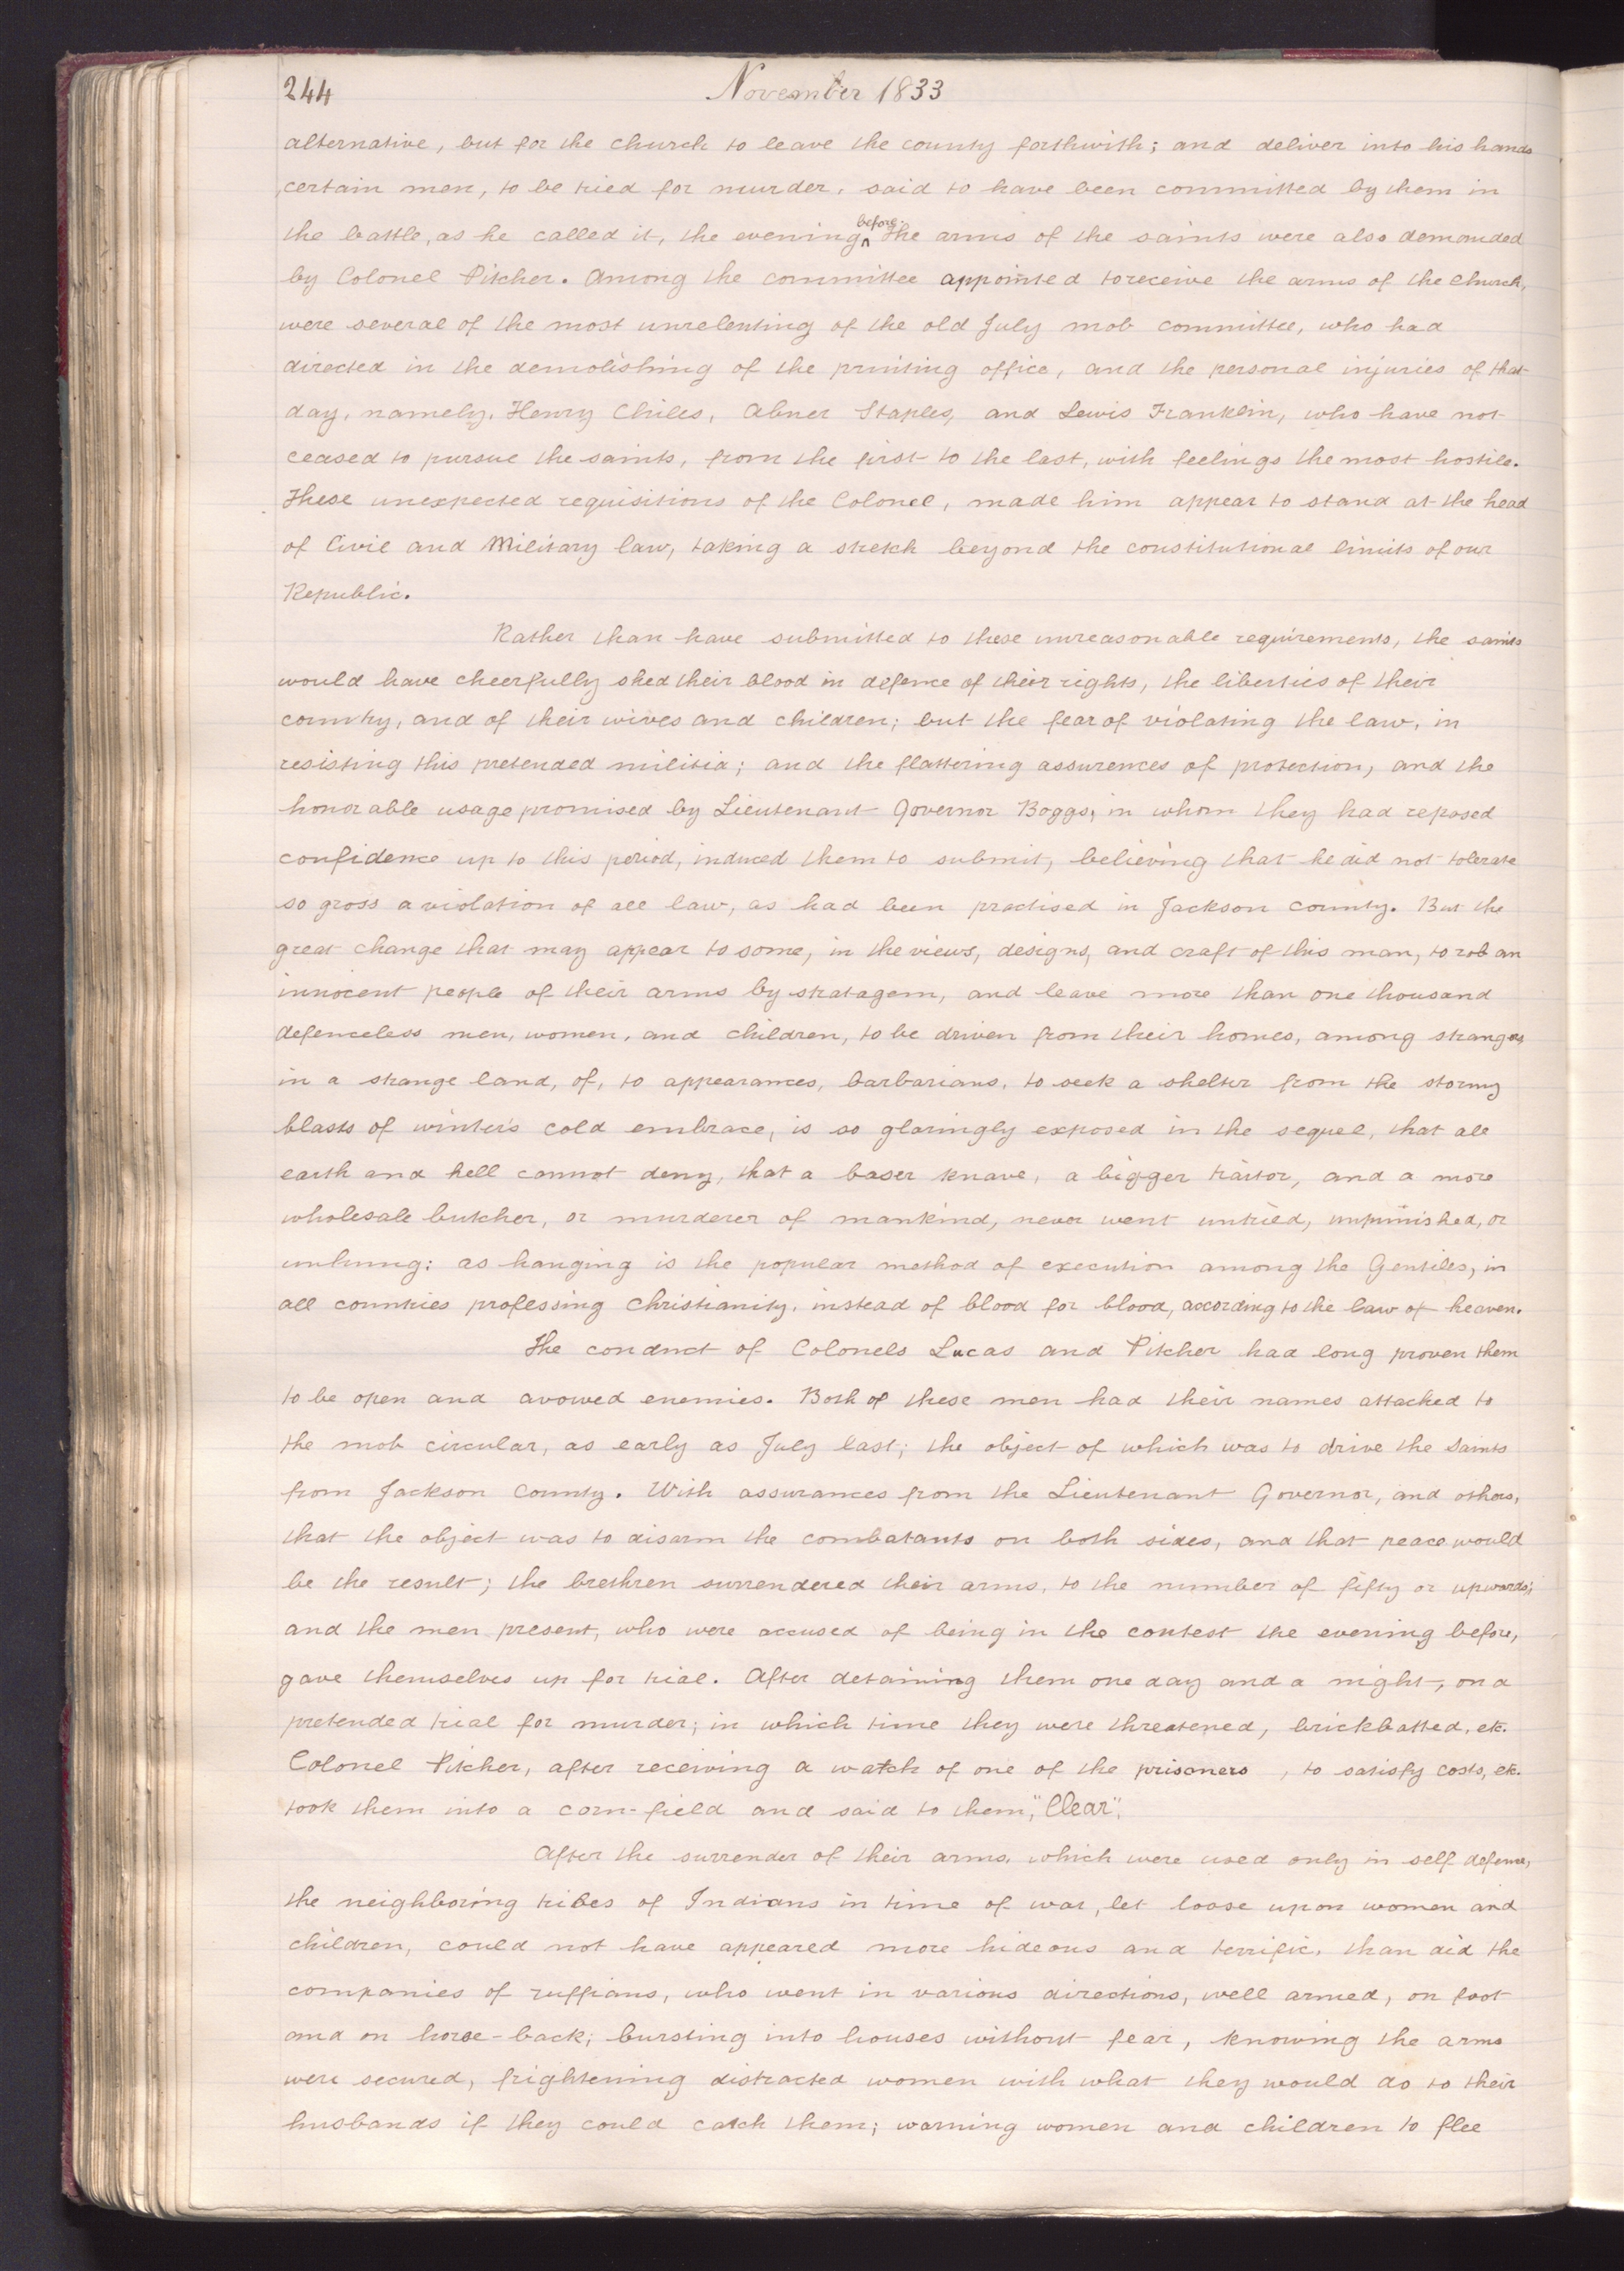 244 November 1833
alternative, but for the church to leave the county forthwith; and deliver into his hands
certain men, to be tried for murder, said to have been committed by them in
the battle, as he called it, the evening ^before.^ The arms of the saints were also demanded
by Colonel Pitcher. Among the committee appointed to receive the arms of the Church,
were several of the most unrelenting of the old July mob committee, who had
directed in the demolishing of the printing office, and the personal injuries of that
day, namely, Henry Chiles, Abner Staples, and Lewis Franklin, who have not
ceased to pursue the saints, from the first to the last, with feelings the most hostile.
These unexpected requisitions of the Colonel, made him appear to stand at the head
of Civil and Military law, taking a stretch beyond the constitutional limits of our
Republic.
Rather than have submitted to these unreasonable requirements, the saints
would have cheerfully shed their blood in defence of their rights, the liberties of their
country, and of their wives and children; but the fear of violating the law, in
resisting this pretended militia; and the flattering assurences of protection, and the
honorable usage promised by Lieutenant Governor Boggs, in whom they had reposed
confidence up to this period, induced them to submit, believing that he did not tolerate
so gross a violation of all law, as had been practised in Jackson County. But the
great change that may appear to some, in the views, designs, and craft of this man, to rob an
innocent people of their arms by stratagem, and leave more than one thousand
defenceless men, women, and children, to be driven from their homes, among strangers,
in a strange land, of, to appearances, barbarians, to seek a shelter from the stormy
blasts of winter's cold embrace, is so glaringly exposed in the sequel, that all
earth and hell cannot deny, that a baser knave, a bigger traitor, and a more
wholesale butcher, or murderer of mankind, never went untried, unpunished, or
unhung: as hanging is the popular method of execution among the Gentiles, in
all countries professing Christianity, instead of blood for blood, according to the law of heaven.
The conduct of Colonels Lucas and Pitcher had long proven them
to be open and avowed enemies. Both of these men had their names attacked to
the mob circular, as early as July last; the object of which was to drive the Saints
from Jackson County. With assurances from the Lieutenant Governor, and others,
that the object was to disarm the combatants on both sides, and that peace would
be the result; the brethren surrendered their arms, to the number of fifty or upwards;
and the men present, who were accused of being in the contest the evening before,
gave themselves up for trial. After detaining them one day and a night, on a
pretended trial for murder; in which time they were threatened, brickbatted, etc.
Colonel Pitcher, after receiving a watch of one of the prisoners , to satisfy costs, etc.
took them into a corn-field and said to them, "Clear".
After the surrender of their arms, which were used only in self defence,
the neighboring tribes of Indians in time of war, let loose upon women and
children, could not have appeared more hideous and terrific, than did the
companies of ruffians, who went in various directions, well armed, on foot
and on horse-back; bursting into houses without fear, knowing the arms
were secured, frightening distracted women with what they would do to their
husbands if they could catch them; warning women and children to flee